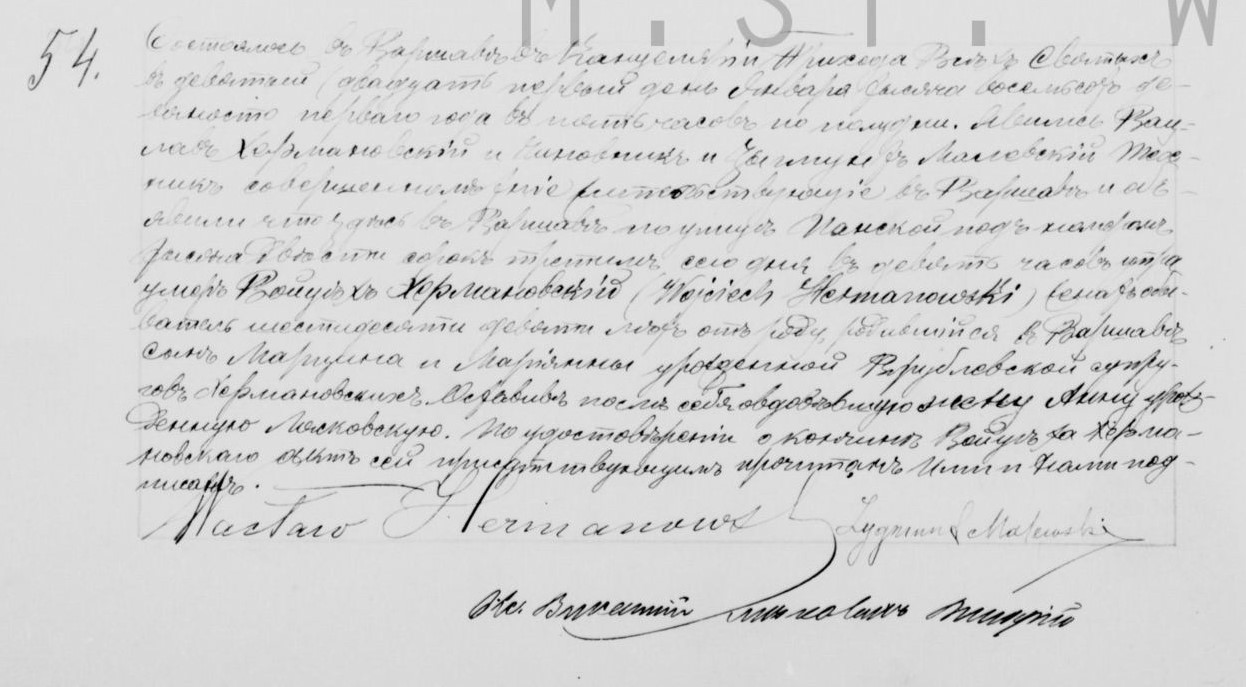 M.ST.W
54.
Состоялось въ Варшавѣ въ Канцеляріи Прихода Всѣхъ Святыхъ
въ девятый (двадцать первый день Января тысяча восемьсотъ де-
вяносто перваго года въ пять часовъ по полудни. Явились Вац-
лавъ Хермановскій и Чиновникъ и Зыгмундъ Малевскій
никъ совершеннолѣтніе жительствующіе въ Варшавѣ и объ-
явили что здѣсь въ Варшавѣ по улицѣ Панской подъ номеромъ
тысяча двѣсти сорокъ третьимъ сего дня въ девять часовъ утра
умеръ Войцѣхъ Хермановскій (Wojciech Hermanowski)
ватель шестидесяти девяти лѣтъ отъ роду, родившійся въ Варшавѣ
сынъ Марцина и Марьянны урожденной Врублевской супру-
говъ Хермановскихъ. Оставивъ послѣ себя овдовѣвшую жену Анну урож-
денную Маковскую. По удостовѣреніи о кончинѣ Войцѣха Херма-
новскаго актъ сей присутствующимъ прочитанъ Ими и Нами под-
писанъ.
Wacław Hermanows Zygmunt Malewski
Кс. Викентій